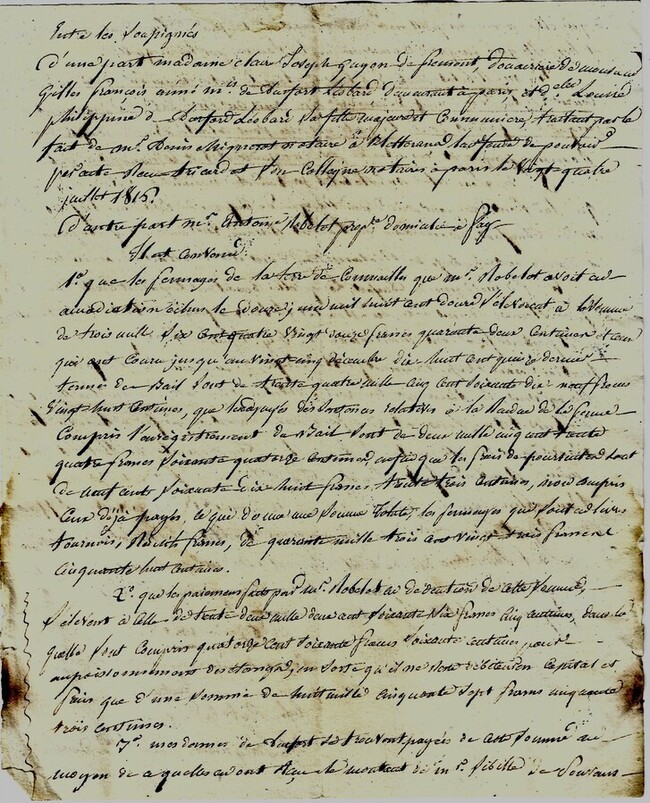 Entre les Soussignés
d'une part madame claire Joseph guyon de fremont, douairiere de monsieur
Gilles françois aimé mis de Durfort Léobard demeurant à paris, et Delle Louise
philippine de Durfort Léobard sa fille majeure et Communiere, traitant par le
fait de mr. Denis mignerot notaire à Bletterans leur fondé de pouvoir
par acte Reçu tricard et Son Collegue notaires à paris le vingt quatre
juillet 1816.
d'autre part mr. Antoine Robelot propre. domicilié à fay
Il est convenu
1º. que les fermages de la terre de Commailles que mr. Robelot avoit en
amodiation échus le douze mil huit cent douze S'élevoient à la Somme
de trois mille Six Cent quatre vingt douze francs quarante deux Centimes et ceux
qui ont Couru jusqu'au vingt cinq décembre dix huit cent quinze dernier
terme de Bail Sont de trente quatre mille cinq cent Soixante dix neuf francs
vingt huit Centimes, que les des Sentences relatives à la de la ferme
Compris l'enregistrement de Bail Sont de deux mille cinq cent trente
quatre francs Soixante quatorze Centimes, enfin que les frais de poursuites Sont
de neuf cent Soixante dix huit francs trente trois Centimes, non compris
Ceux déjà payés, ce qui donne une Somme totale, les fermages que Sont en livres
tournois, Réduits francs, de quarante mille trois cent vingt trois francs
Cinquante huit Centimes.
2º. que les paiemens faits par mr. Robelot en déduction de cette Somme,
S'élevent à celle de trente deux mille deux cent Soixante Six francs Cinq Centimes, dans la
quelle Sont Compris quatorze Cent Soixante francs Soixante centimes pour
empoissonnement des étangs, en Sorte qu'il ne reste débiteur en Capital et
frais que d'une Somme de huit mille Cinquante Sept francs cinquante
trois Centimes.
3º. mes dames de Durfort Se trouvent payées de cette Somme au
moyen de ce qu'elles ont Reçu le montant de mr. Sibille de